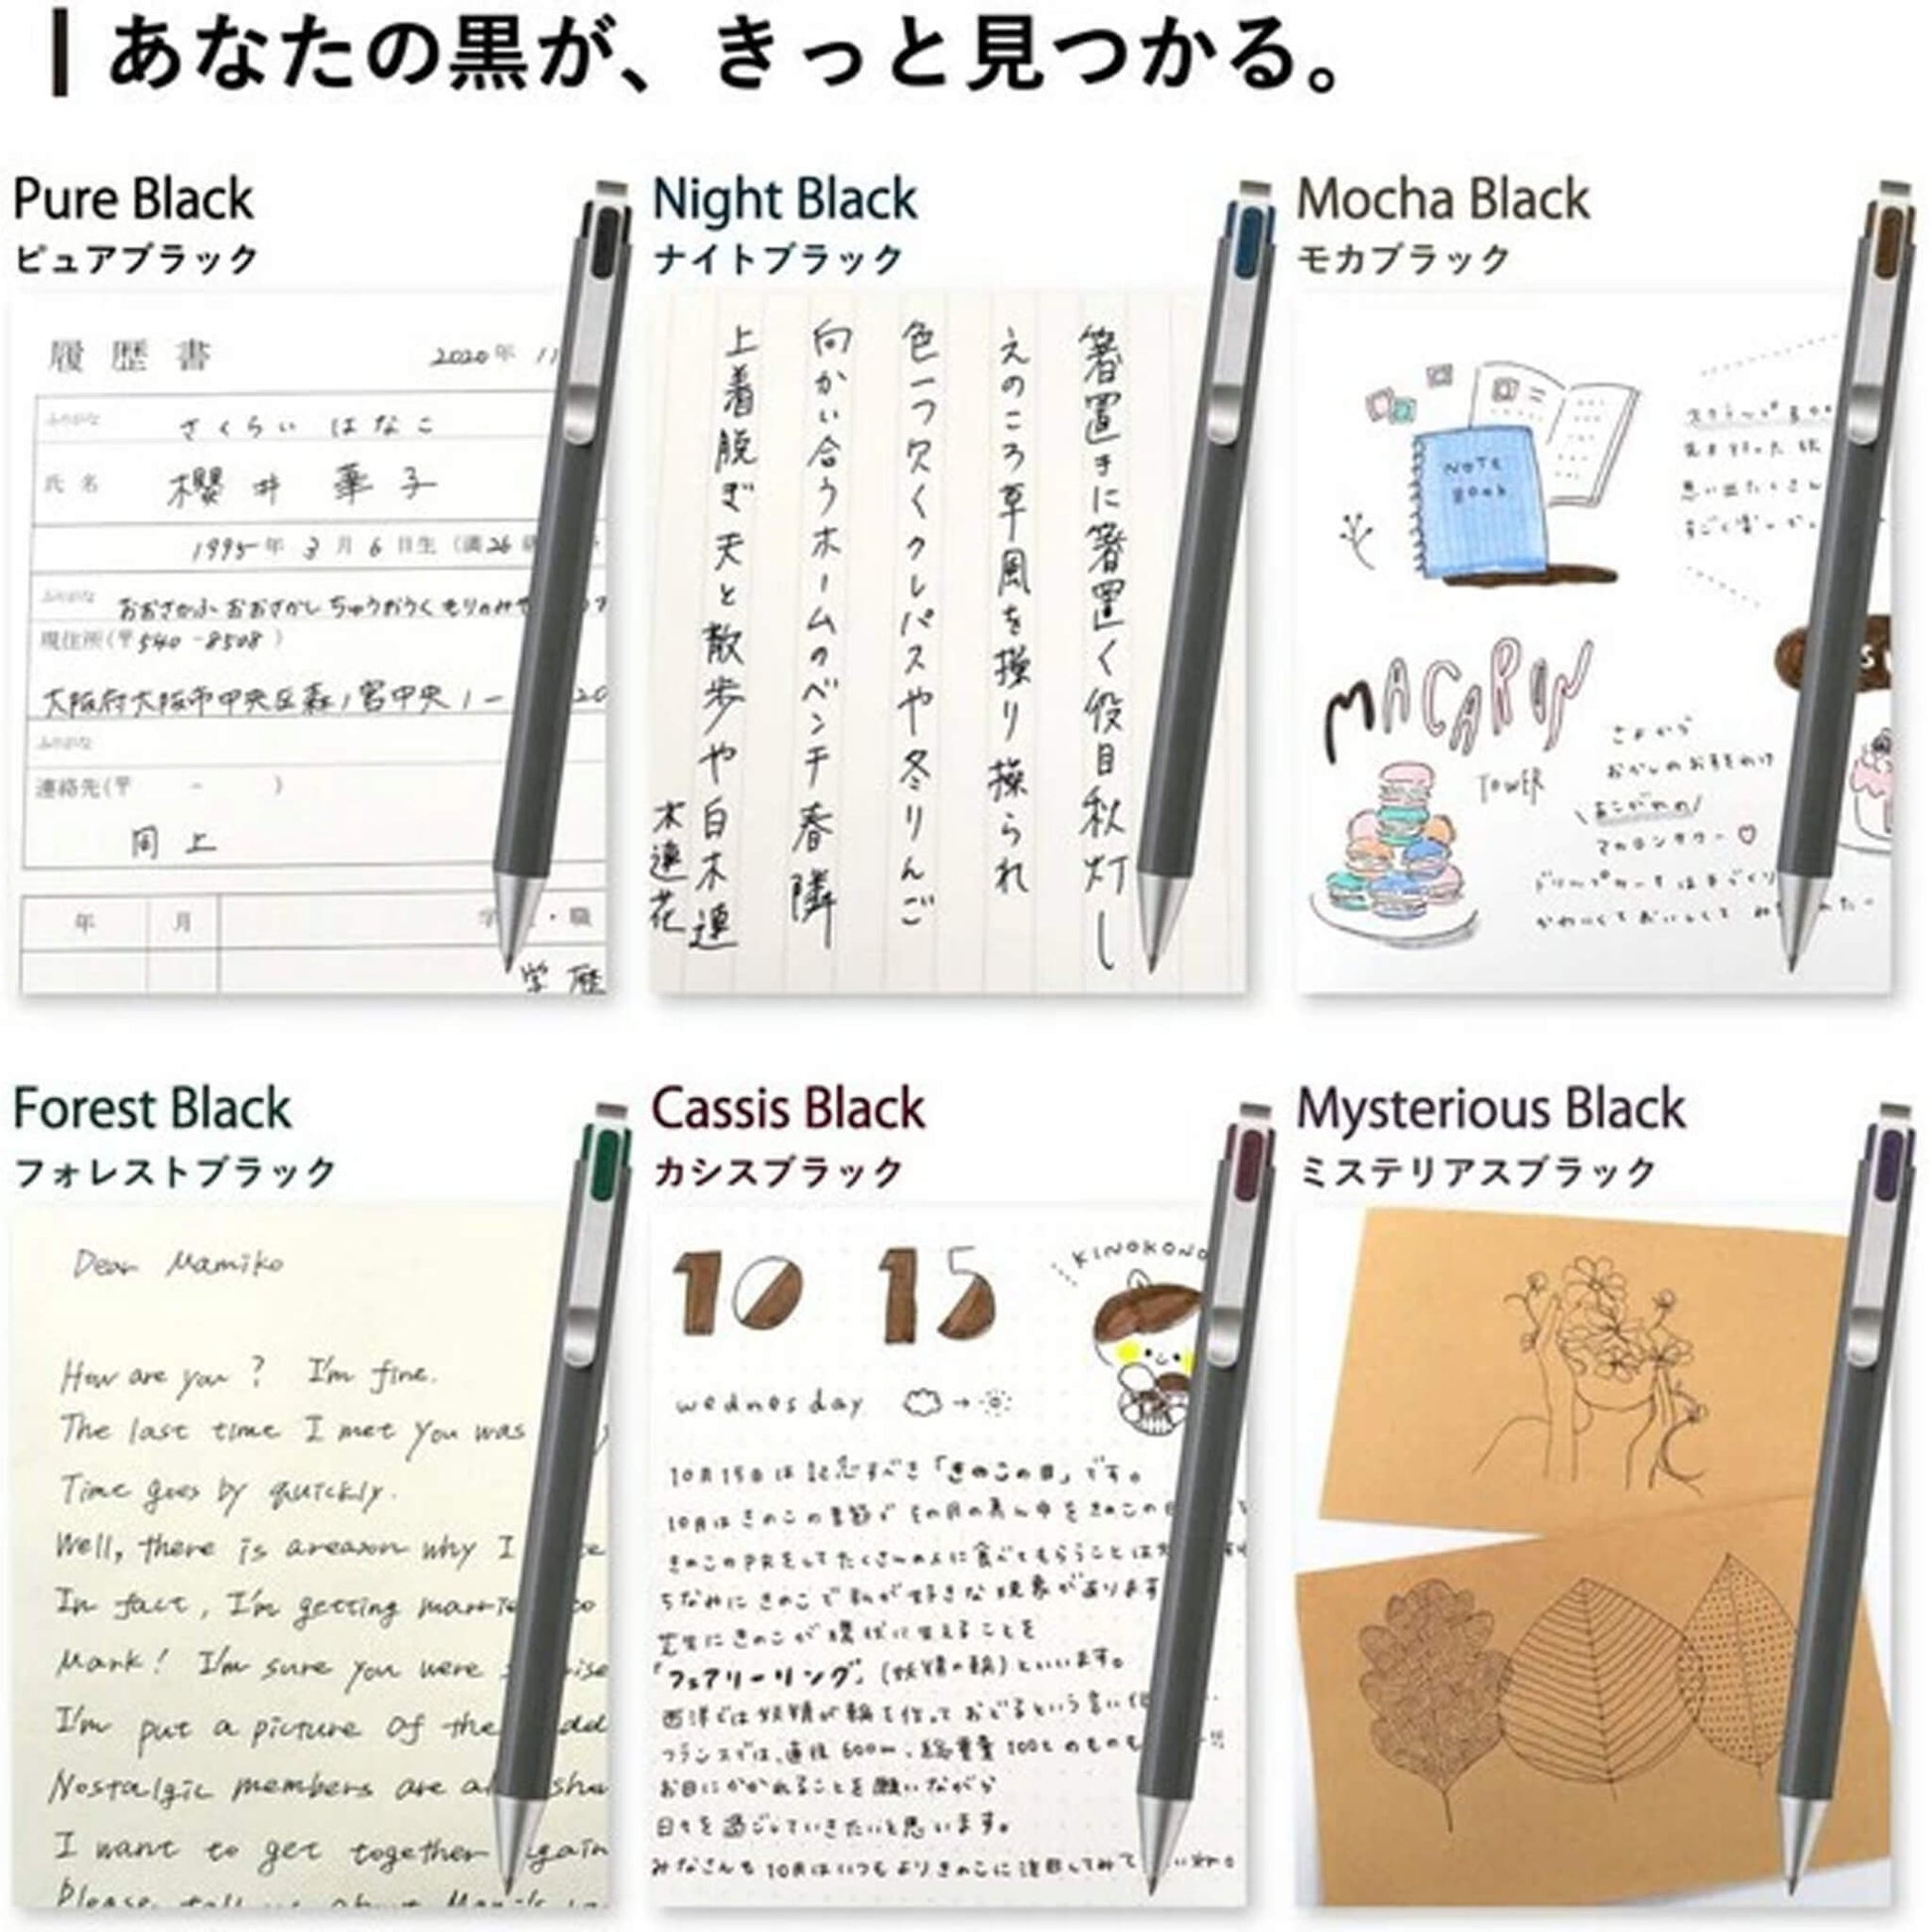 あなたの黒が、きっと見つかる。
Pure Black
ピュアブラック
履歴書 2020年 11
ふりがな さくらい はなこ
氏名 櫻井 華子
1995年 3月 6日生 (満26歳
ふりがな おおさかふ おおさかし ちゅうおうく もりのみや
現住所(〒540-8508)
大阪府大阪市中央区森ノ宮中央1-
ふりがな
連絡先(〒 - )
同上
年 月 学 ・職
学歴
Night Black
ナイトブラック
箸置きに箸置く役目秋灯し
えのころ草風を操り操られ
色一つ欠くクレパスや冬りんご
向かい合うホームのベンチ春隣
上着脱ぎ天と散歩や白木蓮
木蓮花
Mocha Black
モカブラック
NOTE
BOOK
思い出たくさん
MACARON
TOWER
さよから
\あこがれの/
マカロンタワー♡
かわいくておいしくて
Forest Black
フォレストブラック
Dear Mamiko
How are you? I'm fine.
The last time I met you was
Time goes by quickly.
Well, there is areason why I
In fact, I'm getting
Mark! I'm sure you were
I'm put a picture of the
Nostalgic members are
I want to get together
Please tell us about
Cassis Black
カシスブラック
10 15
KINOKO
wednesday
10月15日は記念すべき「きのこの日」です。
10月はきのこの季節で その月の真ん中をきのこの日
きのこのPRをしてたくさんの人に食べてもらうことは
ちなみにきのこで私が好きな現象があります
芝生にきのこが環状に生えることを
「フェアリーリング」(妖精の輪)といいます。
西洋では妖精が輪を作って おどるという言い伝
フランスでは、直径600m、総重量100tのものも
お目にかかれることを願いながら
日々を過ごしていきたいと思います。
みなさんも10月はいつもよりきのこに注目してみて
Mysterious Black
ミステリアスブラック